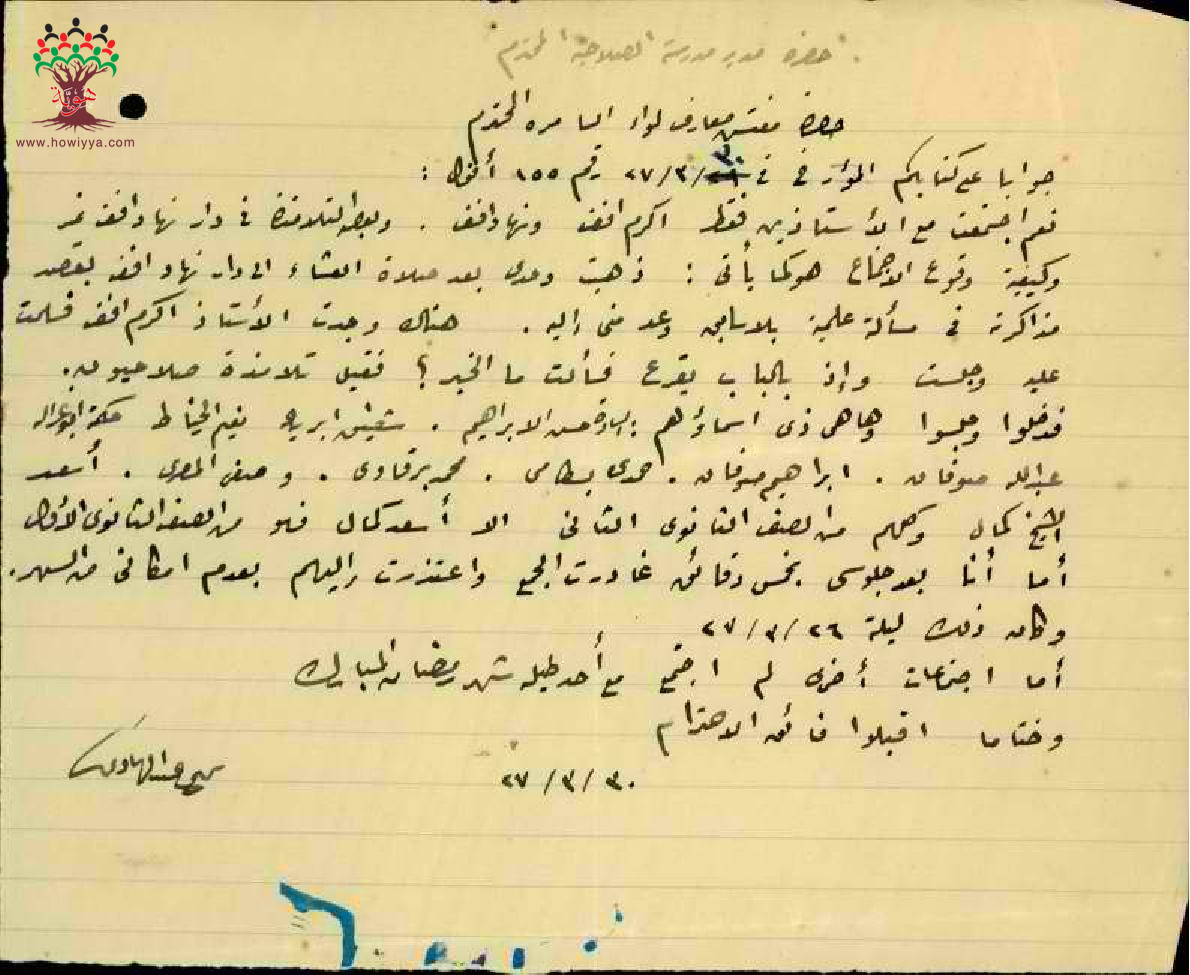 هوية
www.howiyya.com
حضرة مدير مدرسة الصلاحية المحترم
حضرة مفتش معارف لواء السامره المحترم
جوابا على كتابكم المؤرخ في ٣٠/٣/٢٧ رقم ١٥٥ أقول :
نعم اجتمعت مع الأستاذين فقط اكرم افندي ونهاد افندي . وبعض التلامذة في دار نهاد افندي نمر
وكيفية وقوع الاجتماع هو كما يأتي : ذهبت وحدي بعد صلاة العشاء الى دار نهاد افندي بقصد
مذاكرته في مسألة علمية بلا سابق وعد مني إليه . هناك وجدت الأستاذ اكرم افندي فسلمت
عليه وجلست وإذ بالباب يقرع فسألت ما الخبر ؟ فقيل تلامذة صلاحيون .
فدخلوا وجلسوا وها هي ذي اسماؤهم : حسن الابراهيم . نعيم الخياط حكمة
عبدالله صوفان . ابراهيم صوفان . حمدي بسطامي . محمد برقاوي . وصفي المصري . أسعد
الشيخ كمال وكلهم من الصف الثانوي الثاني الا أسعد كمال فهو من الصف الثانوي الأول
أما أنا بعد جلوسي بخمس دقائق غادرت الجمع واعتذرت إليهم بعدم امكاني من السهر .
وكان ذلك ليلة ٢٦ /٣/ ٢٧
أما اجتماعات أخرى لم اجتمع مع أحد طيلة شهر رمضان المبارك
وختاما اقبلوا فائق الاحترام
٣٠ /٣/ ٢٧
عبد الهادي